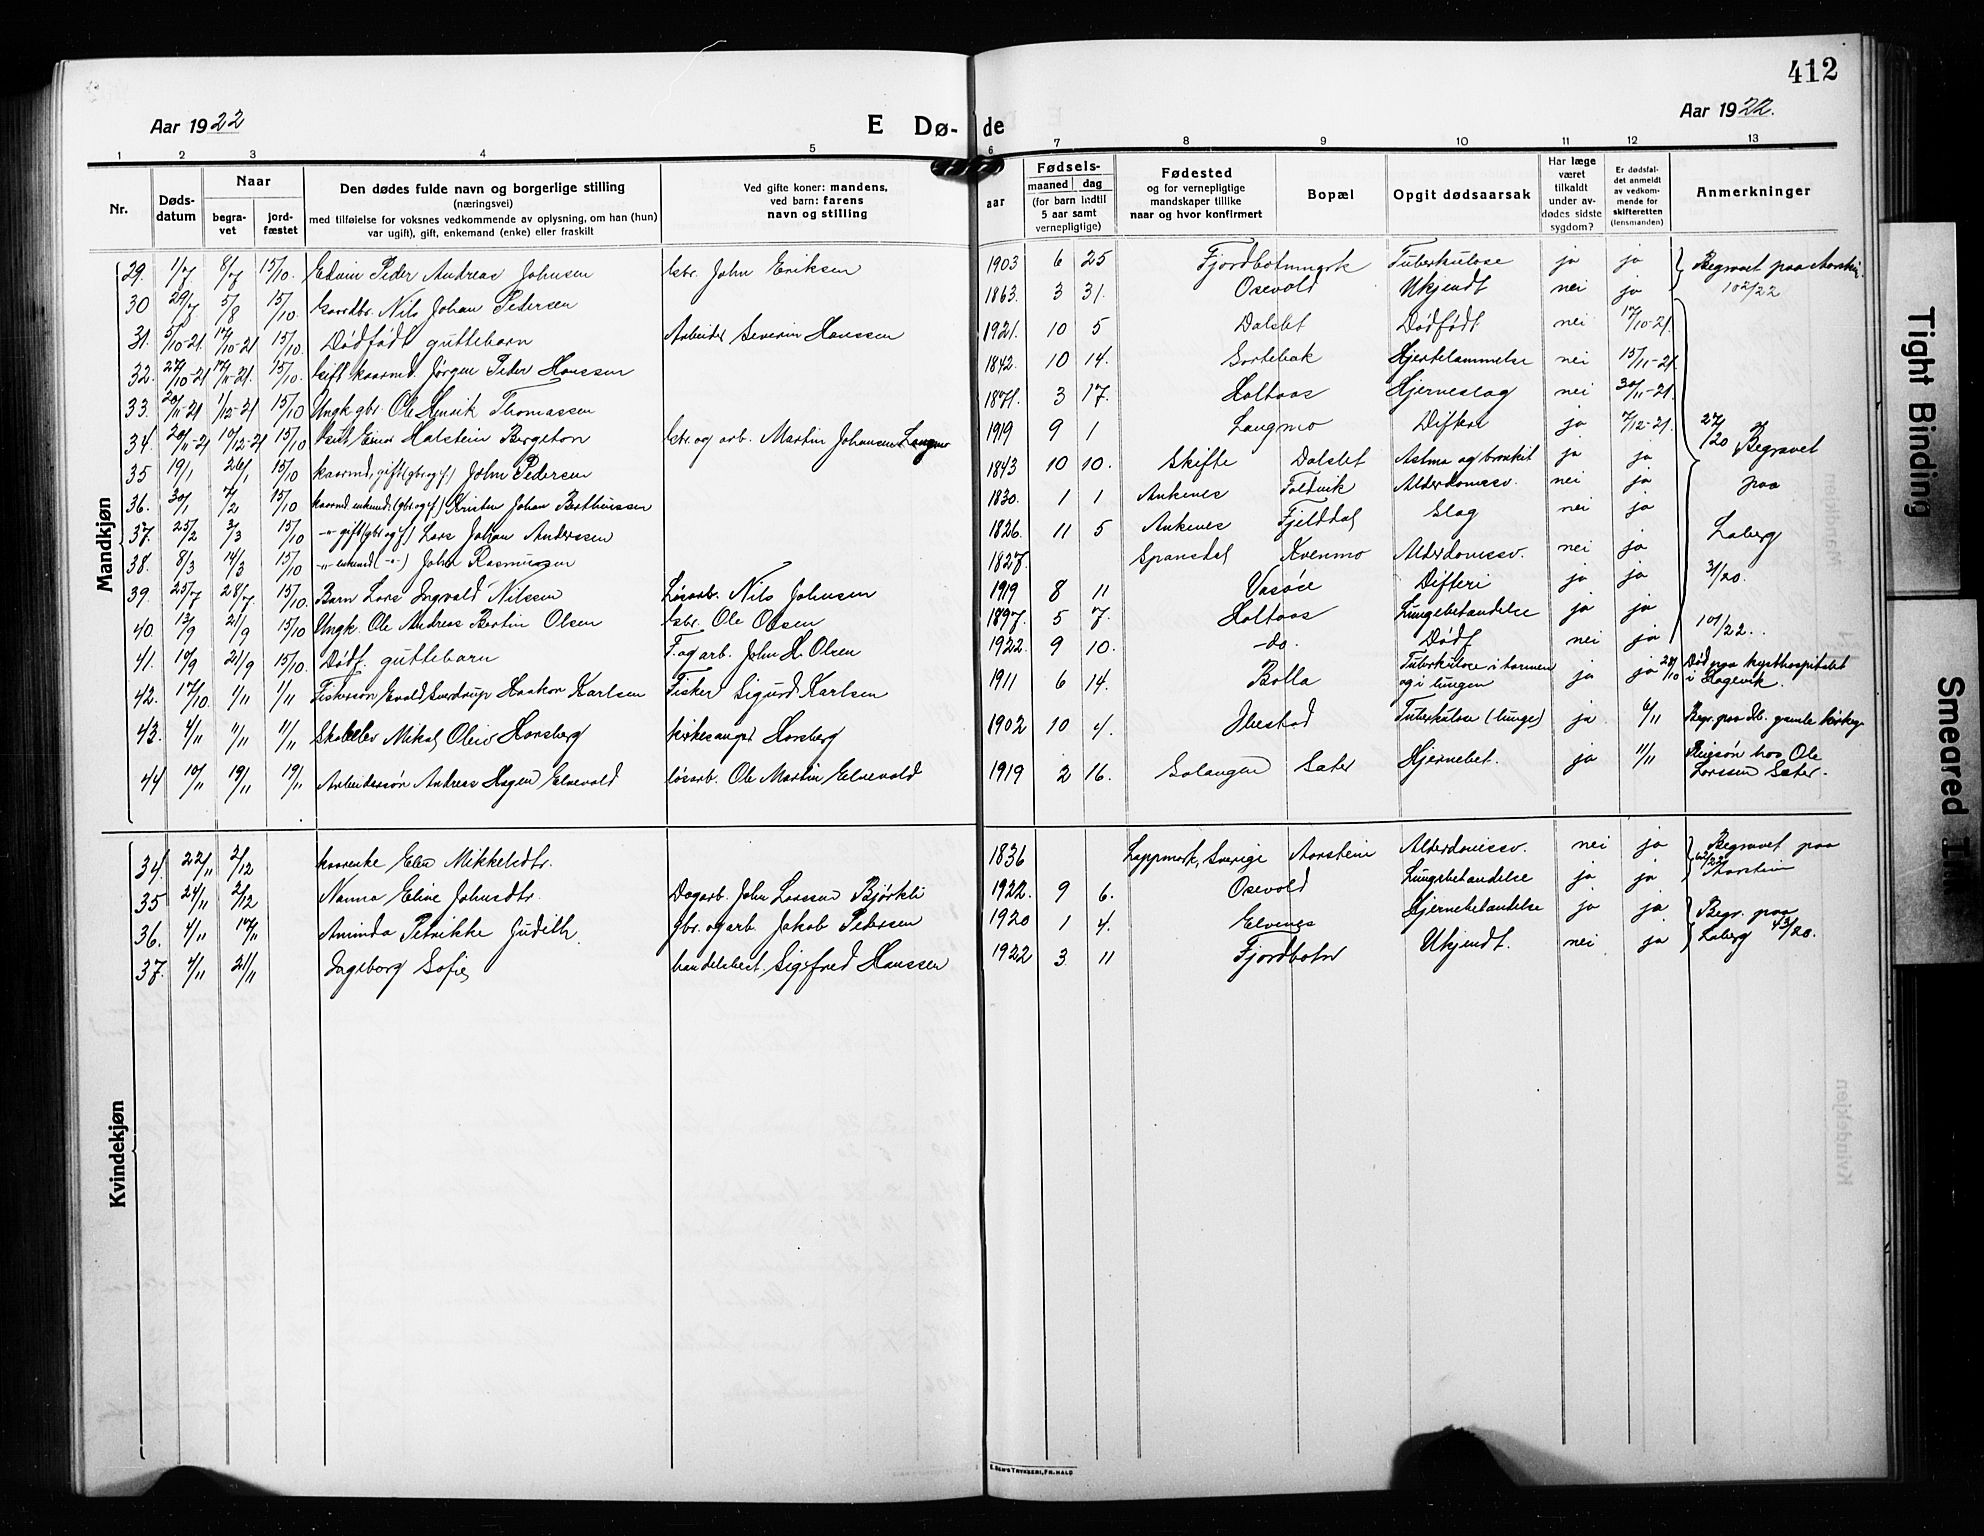 412
Aar 1922
E Dø-de
Aar 1922.
1 2 3 4 5 6 7 8 9 10 11 12 13
Nr.
Døds-datum
Naar
begra-vet
jord-fæstet
Den dødes fulde navn og borgerlige stilling
(næringsvei)
med tilføielse for voksnes vedkommende av oplysning, om han (hun)
var ugift), gift, enkemand (enke) eller fraskilt
Ved gifte koner: mandens,
ved barn: farens
navn og stilling
Fødsels-
aar
maaned
dag
(for barn indtil
5 aar samt
vernepligtige)
Fødested
og for vernepligtige
mandskaper tillike
naar og hvor konfirmert
Bopæl
Opgit dødsaarsak
Har læge
været
tilkaldt
under av-
dødes sidste
sygdom?
Er dødsfal-
det anmeldt
av vedkom-
mende for
skifteretten
(lensmanden)
Anmerkninger
Mandkjøn
29. 1/7 8/7 15/10. Edvin Peder Andreas Johnsen Gbr. John Eriksen 1903 6 25 Fjordbotnmark Tuberkulose ja ja Begravet paa Aarstein 102/22
30 29/7 5/8 15/10. Gaardbr. Nils Johan Pedersen 1863. 3 31. Osevold Ukjendt nei ja
31. 5/10-21 17/10-21 15/10. Dødfødt guttebarn Arbeider Severin Hanssen 1921. 10 5 Dalslet Dødfødt nei 17/10-21
32. 27/10-21 17/11-21. 15/10. Gift kaarmd. Jørgen Peder Hanssen 1842. 10 14. Sortebak Hjertelammelse nei 15/11-21
33. 20/11-21 1/12-21 15/10 Ungk. gbr. Ole Henrik Thomassen 1871. 3 17. Holtaas Hjerneslag nei 30/11-21
34. 20/11-21 10/12-21 15/10. Gut Einar Halstein Bergston Gbr. og arb. Martin Johansen Langmo 1919 9 1 Langmo Difteri ja 7/12-21. 27/20 Begravet
35 19/1 26/1 15/10 kaarmd, gift (gbr og f) John Pedersen 1843 10 10. Skifte Dalslet Astma og bronkit ja ja
36. 30/1 7/2 15/10 kaarmd enkemd. (gbr og f) Kristen Johan Bertheussen 1830. 1 1 Ankenes Foldvik Alderdomssv. nei ja paa
37. 25/2 3/3 15/10 -"- gift (gbr og f) Lars Johan Anderssen 1826. 11 5 Ankenes Fjelddal Slag nei ja Laberg
38. 8/3 14/3 15/10 -"- enkemd (-"-) John Rasmussen 1827. Spansdal Kvenmo Alderdomssv. nei ja
39. 25/7 28/7. 15/10. Barn Lars Ingvald Nilssen Løsarb. Nils Johnsen 1919 8 11 Difteri ja ja 31/20.
40. 13/9 21/9 15/10 Ungk. Ole Andreas Bertin Olsen Gbr. Ole Olsen 1897. 5 7. Holtaas Lungebetændelse ja ja
41. 10/9 21/9 15/10. Dødf. guttebarn F. og arb. John H. Olsen 1922. 9 10. -do. Dødf nei ja 101/22.
42. 17/10. 1/11 1/11 Fiskersøn Evald Sverdrup Haakon Karlsen Fisker Sigurd Karlsen 1911 6 14. Bolla Tuberkulose i tarmen og i lungen ja ja 28/10 Død paa kysthospitalet i
43. 4/11 11/11 11/11 Skoleelev Mikal Olav Horsberg kirkesanger Horsberg 1902 10 4. Ibestad Tuberkulose (lunge) ja 6/11 Begr. paa Ib. gamle kirkeg
44 10/11 19/11 19/11 Arbeidersøn Andreas Hagen Elvevold løsarb. Ole Martin Elvevold 1919 2 16. Salangen Sæter Hjernebet. ja 11/11 Pleiesøn hos Ole Larssen Sæter.
Kvindekjøn
34. 22/11 2/12 kaarenke Elen Mikkelsdtr. 1836 Lappmark, Sverige Aarstein Alderdomssv. nei ja Begravet paa Aarstein
35 24/11 2/12 Nanna Eline Johnsdtr. Dagarb. John Larssen Bjørkli 1922. 9 6. Osevold Lungebetændelse ja ja
36. 4/11 17/11 Aminda Petrikke Judith Gbr. og arb. Jakob Pedersen 1920 1 4. Elvenes Hjernebetændelse ja ja Begr. paa Laberg 43/20.
37. 4/11 21/11 Ingeborg Sofie handelsbest. Sigfred Hanssen 1922 3 11 Fjordbotn Ukjendt. nei ja
E. SEM'S TRYKKERI, FR. HALD
Tight Binding
Smeared Ink
Kvindekjøn